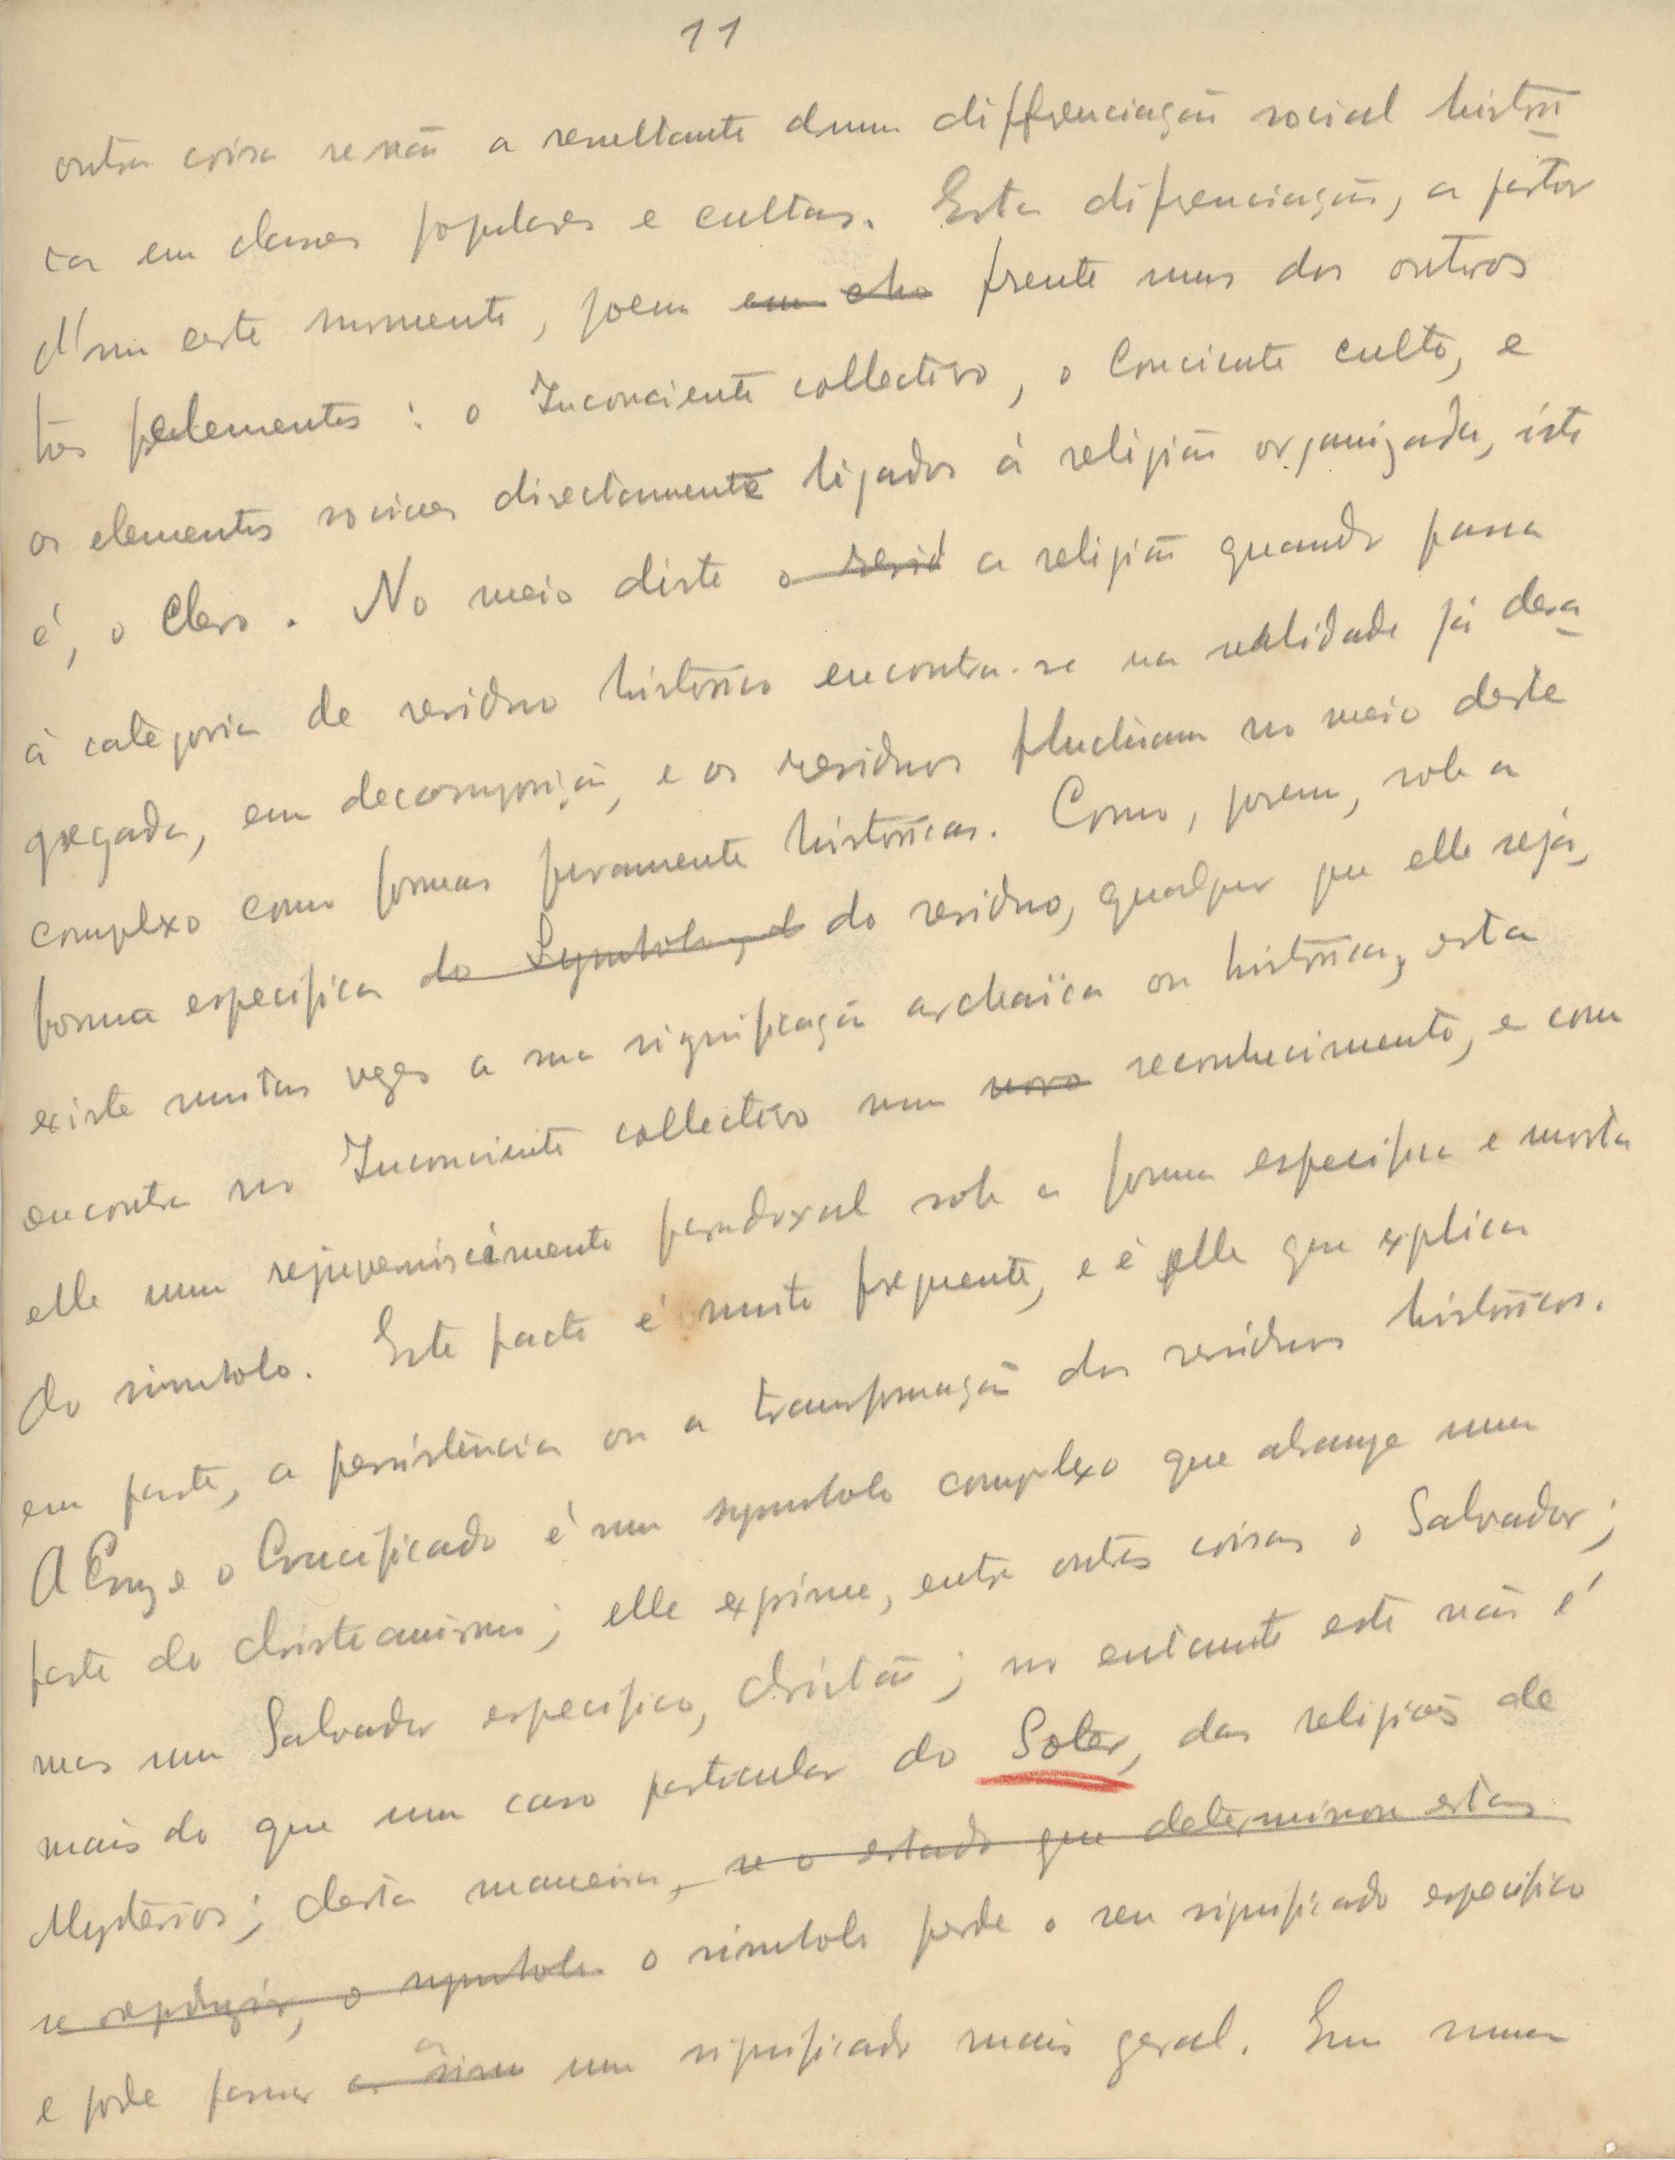 11
outra coisa senão a resultante duma diffrenciação social histori
ca em classes populares e cultas. Esta difrenciação, a partir
d'um certo momento, poem em cho frente uns dos outros
tres elementos : o Inconciente collectivo, o Conciente culto, e
os elementos sociaes directamente ligados á religião organizada, isto
é, o Clero. No meio disto o resid a religião quando passa
á categoria de residuo historico encontra-se na realidade já desa
gregada, em decomposição, e os residuos fluctuam no meio deste
complexo como formas puramente historicas. Como, porem, sob a
forma especifica do Symbolo, d do residuo, qualquer que elle seja,
existe muitas vezes a sua significação archaïca ou historica, esta
encontra no Inconciente collectivo um novo reconhecimento, e com
elle um rejuvenescimento paradoxal sob a forma especifica e morta
do simbolo. Este facto é muito frequente, e é elle que explica
em parte, a persistencia ou a transformação dos residuos historicos.
A Cruz e o Crucificado é um symbolo complexo que abrange uma
parte do christianismo; elle exprime, entre outras coisas o Salvador;
mas um Salvador especifico, christão; no entanto este não é
mais do que um caso particular do Soter, das religiões de
Mysterios; desta maneira, se o estado que determinou estas
se reproduzir, o symbolo o simbolo perde o seu significado especifico
e pode passar a sim um significado mais geral. Em suma